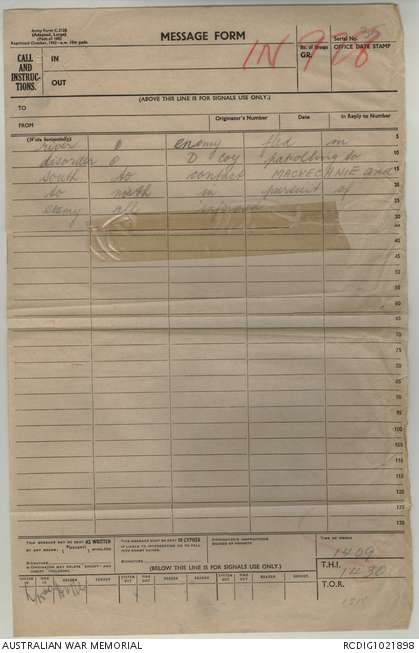 Army Form C.2128
MESSAGE FORM
Serial No.
IN 928
CALL
AND
INSTRUC-
TIONS.
IN
OUT
No. of Groups
GR.
OFFICE DATE STAMP
(ABOVE THIS LINE IS FOR SIGNALS USE ONLY.)
TO
FROM
Originator's Number
Date
In Reply to Number
(Write horizontally)
river @ enemy fled in 5
disorder @ D coy patrolling to 10
south to contact MACKECHNIE and 15
to north in pursuit of 20
enemy all informed 25
30
35
40
45
50
55
60
65
70
75
80
85
90
95
100
105
110
115
120
THIS MESSAGE MAY BE SENT AS WRITTEN
BY ANY MEANS
WIRELESS
SIGNATURE
THIS MESSAGE MUST BE SENT IN CYPHER
IF LIABLE TO INTERCEPTION OR TO FALL
INTO ENEMY HANDS.
SIGNATURE
ORIGINATOR'S INSTRUCTIONS
DEGREE OF PRIORITY
TIME OF ORIGIN
1409
(BELOW THIS LINE IS FOR SIGNALS USE ONLY.)
T.H.I.
1430
T.O.R.
SYSTEM IN
TIME IN
READER
SENDER
SYSTEM OUT
TIME OUT
READER
SENDER
SYSTEM OUT
TIME OUT
READER
SENDER
AUSTRALIAN WAR MEMORIAL
RCDIG1021898